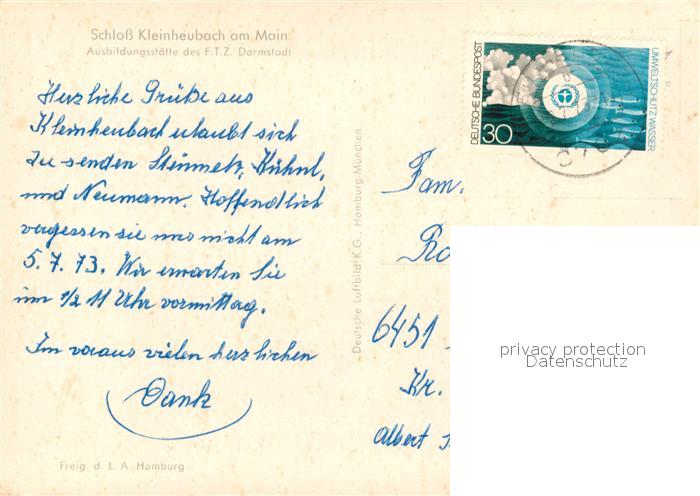 Schloß Kleinheubach am Main
Ausbildungsstätte des F.T.Z. Darmstadt
Herzliche Grüße aus
Kleinheubach erlaubt sich
zu senden Steinmetz, Kühnl,
und Neumann. Hoffendlich
vergessen sie uns nicht am
5.7.73. Wir erwarten Sie
um 1/2 11 Uhr vormittag.
Im voraus vielen herzlichen
Dank
Freig. d. L. A. Hamburg
Deutsche Luftbild K.G., Hamburg-München
DEUTSCHE BUNDESPOST
30
UMWELTSCHUTZ: WASSER
Fam.
Ro
6451
Kr.
Albert
privacy protection
Datenschutz